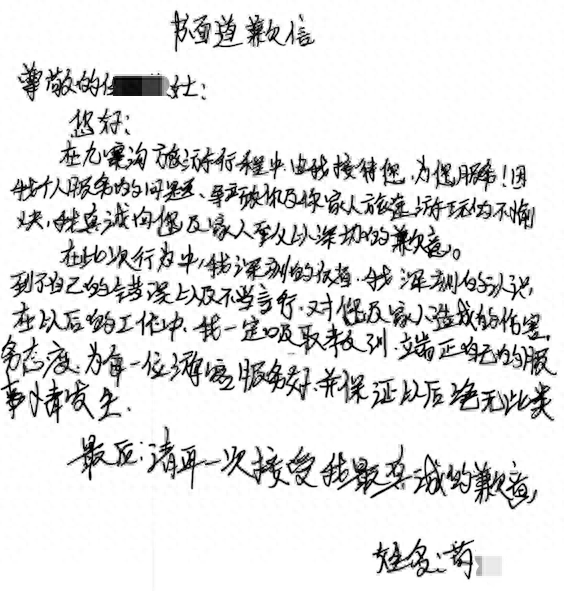 书面道歉信
尊敬的任女士:
您好:
在九寨沟旅游行程中由我接待您,为您服务!因
我个人服务的问题,导致你及你家人旅途游玩的不愉
快,我真诚向您及家人至以深切的歉意。
在此次行为中,我深刻的反省.我深刻的认识
到了自己的错误以及不当言行.对您及家人造成的伤害.
在以后的工作中.我一定吸取教训.端正自己的服
务态度.为每一位游客服务好.并保证以后绝无此类
事情发生.
最后:请再一次接受我最真诚的歉意,
姓名:苟